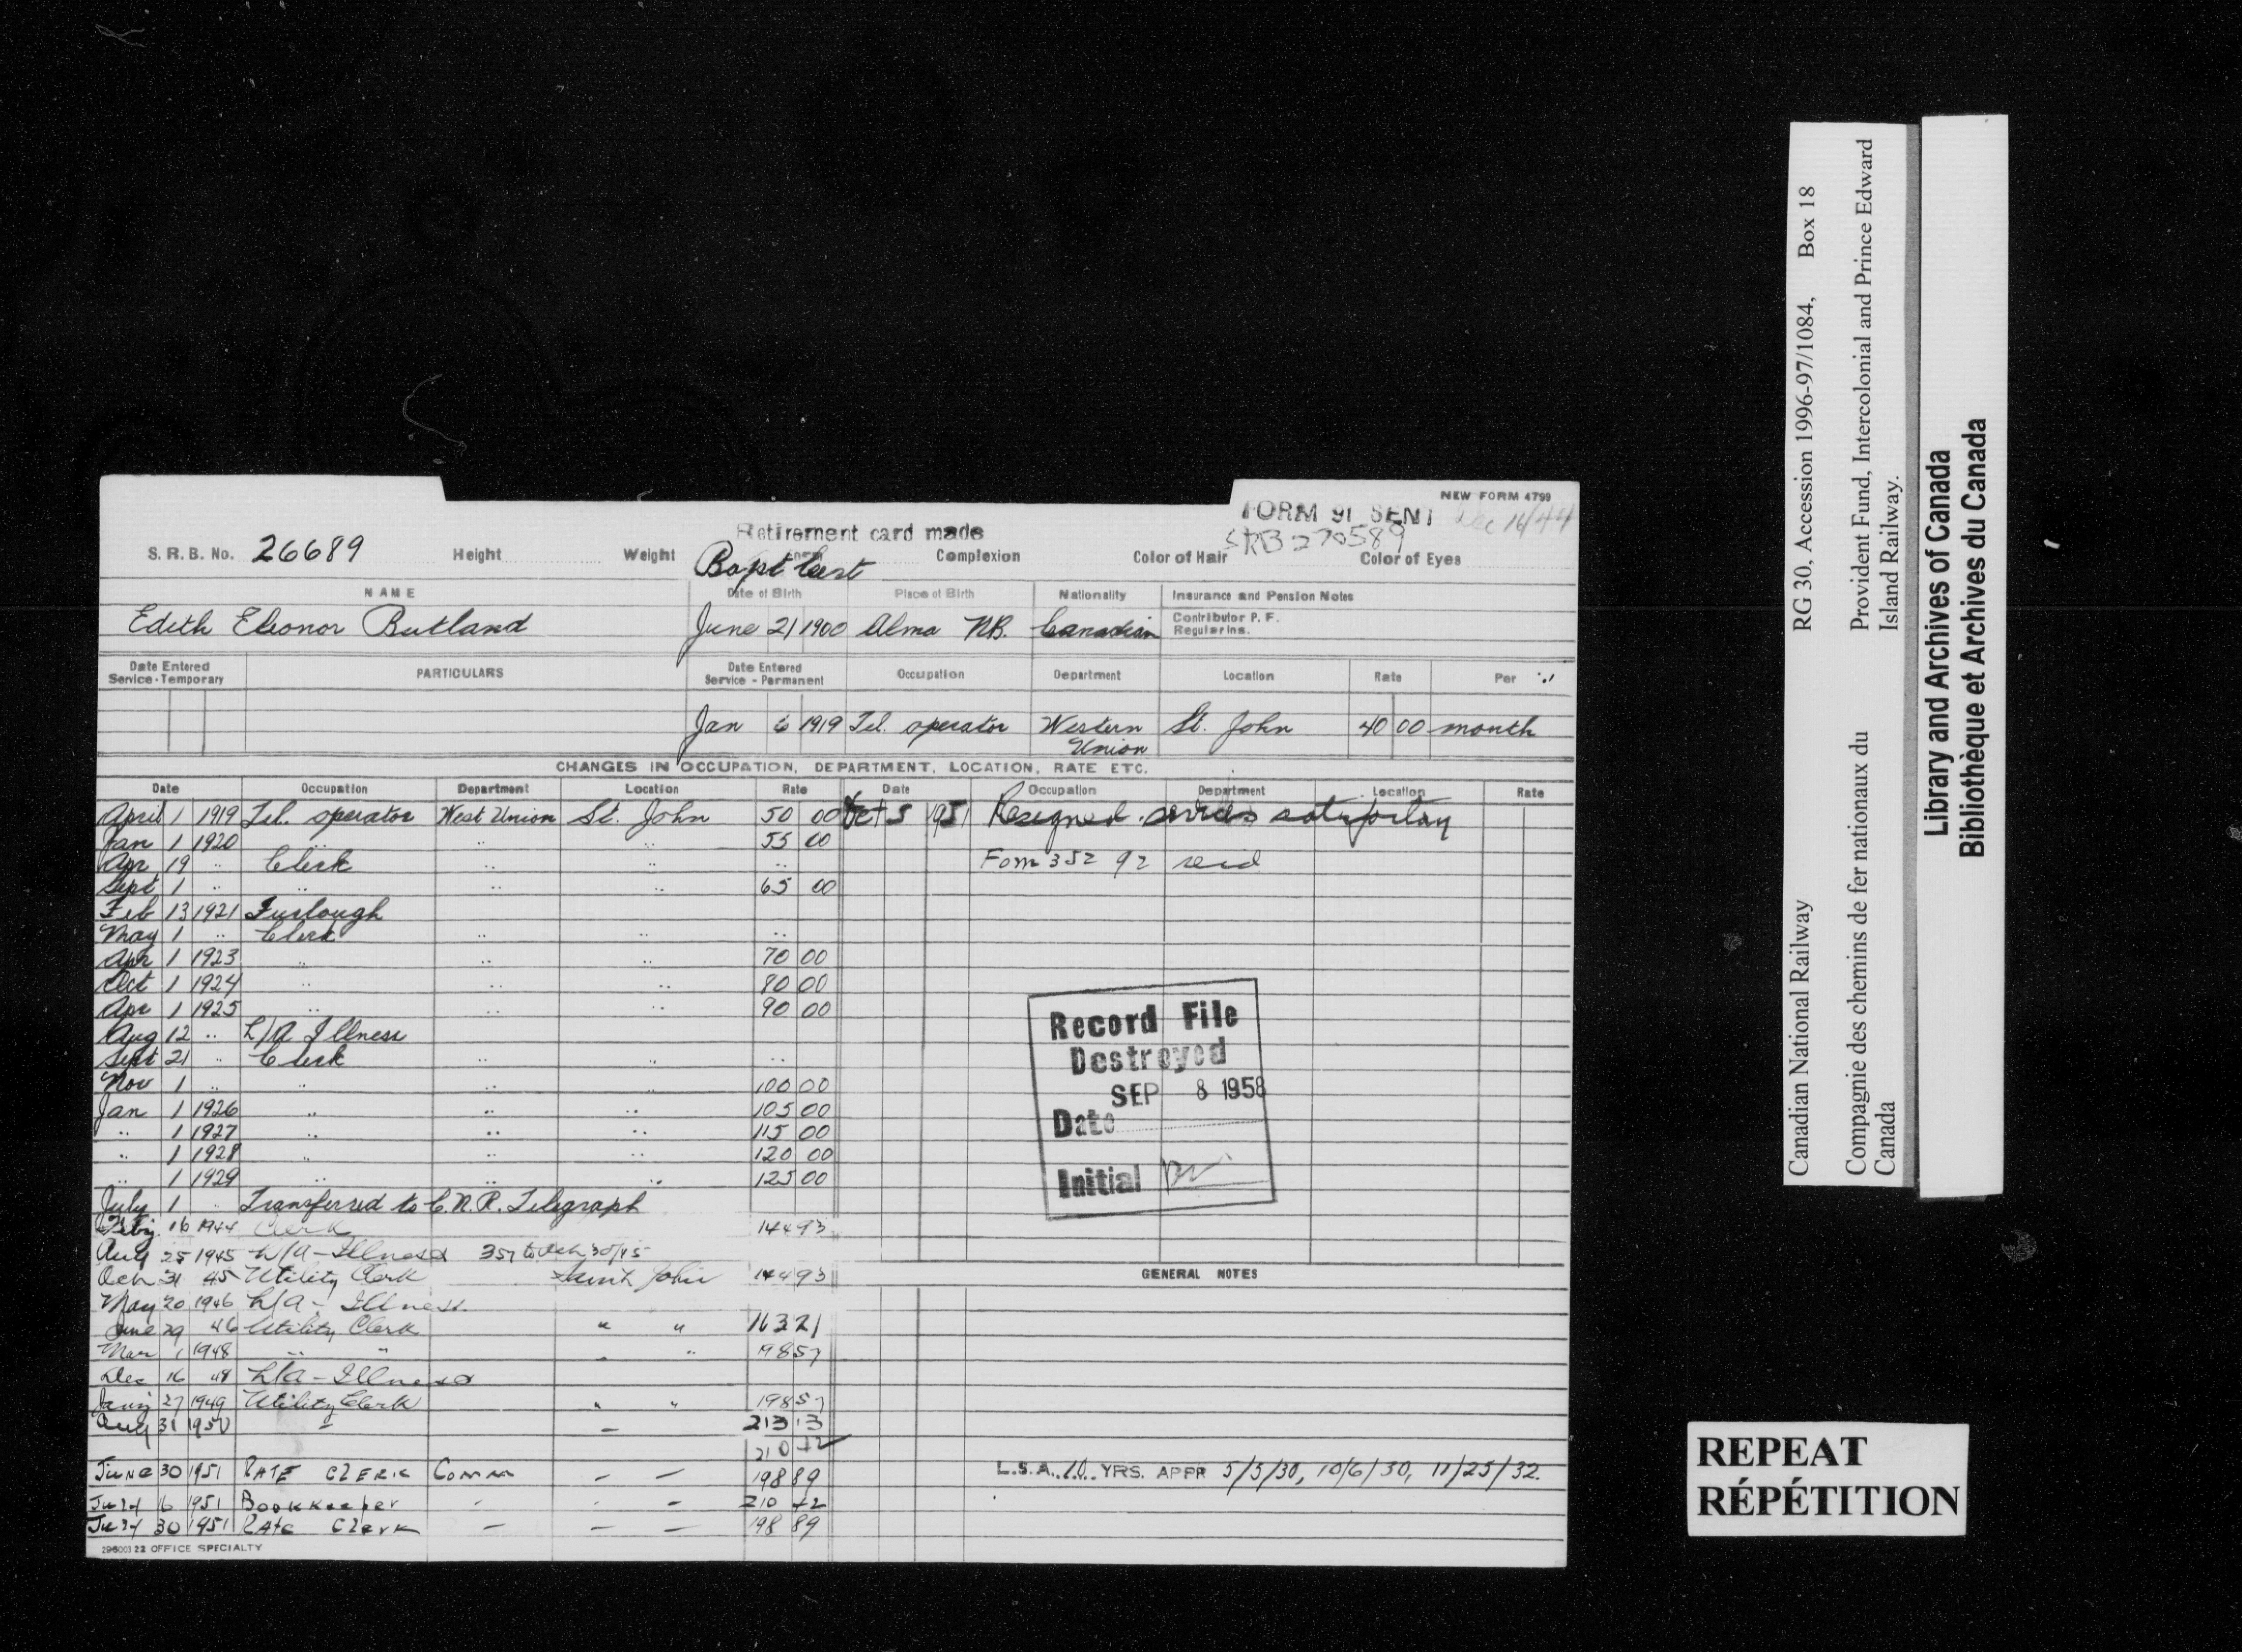 NEW FORM 4799
Retirement card made
FORM 91 SENT Dec 16/44
SRB 270589
S. R. B. No. 26689 Height Weight Complexion Color of Hair Color of Eyes
Baptist
NAME Date of Birth Place of Birth Nationality Insurance and Pension Notes
Edith Eleonor Butland June 21 1900 Alma N.B. Canadian
Contributor P. F.
Regular Ins.
Date Entered Service - Temporary PARTICULARS Date Entered Service - Permanent Occupation Department Location Rate Per
Jan 6 1919 Tel. operator Western Union St. John 40 00 month
CHANGES IN OCCUPATION, DEPARTMENT, LOCATION, RATE ETC.
Date Occupation Department Location Rate Date Occupation Department Location Rate
April 1 1919 Tel. operator West Union St. John 50 00 Oct 5 1951 Resigned. services satisfactory
Jan 1 1920 " " " 55 00
Apr 19 " Clerk " " " Form 352 92 recd
Sept 1 " " " " 65 00
Feb 13 1921 Furlough
May 1 " Clerk " " "
Apr 1 1923 " " " 70 00
Oct 1 1924 " " " 80 00
Apr 1 1925 " " " 90 00
Aug 12 " L/A Illness
Sept 21 " Clerk " " "
Nov 1 " " " " 100 00
Jan 1 1926 " " " 105 00
" 1 1927 " " " 115 00
" 1 1928 " " " 120 00
" 1 1929 " " " 125 00
July 1 " Transferred to C.N.R. Telegraph
Feby. 16 1944 Clerk 144 93
Aug 25 1945 L/A - Illness 357 to Oct 30/45
Oct 31 45 Utility Clerk Saint John 144 93
May 20 1946 L/A - Illness.
June 29 46 Utility Clerk " " 163 21
Mar 1 1948 " " " " 198 57
Dec 16 48 L/A - Illness
Jany 27 1949 Utility Clerk " " 198 57
Aug 31 1950 " - 213 13
210 42
June 30 1951 RATE CLERK Comm - - 198 89
July 6 1951 Bookkeeper - - - 210 42
July 30 1951 Rate Clerk - - - 198 89
296003 22 OFFICE SPECIALTY
Record File
Destroyed
SEP 8 1958
Date
Initial
GENERAL NOTES
L.S.A. 10 YRS. APPR 5/5/30, 10/6/30, 11/25/32.
Canadian National Railway RG 30, Accession 1996-97/1084, Box 18
Compagnie des chemins de fer nationaux du Canada
Provident Fund, Intercolonial and Prince Edward Island Railway.
Library and Archives of Canada
Bibliothèque et Archives du Canada
REPEAT
RÉPÉTITION